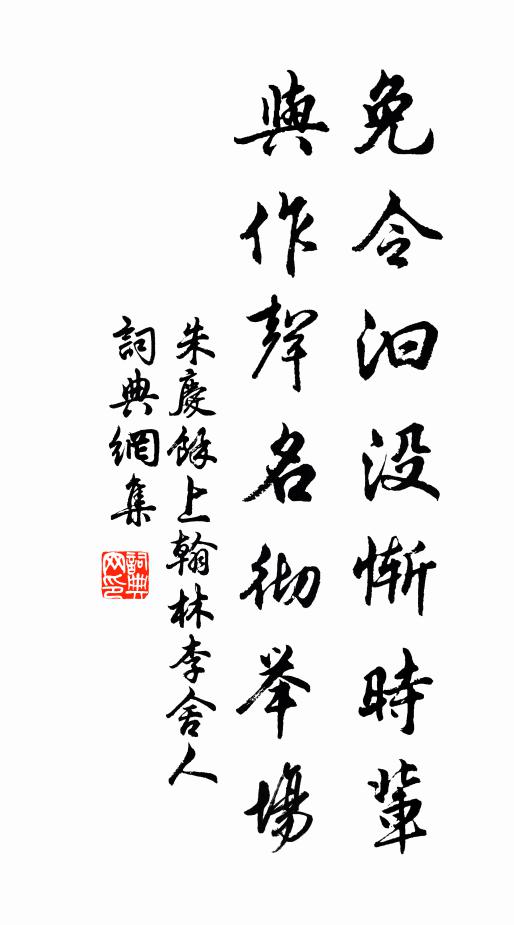 免令汩没惭時輩
與作聲名彻举場
朱慶餘上翰林李舍人
詞典網集
詞典
网印